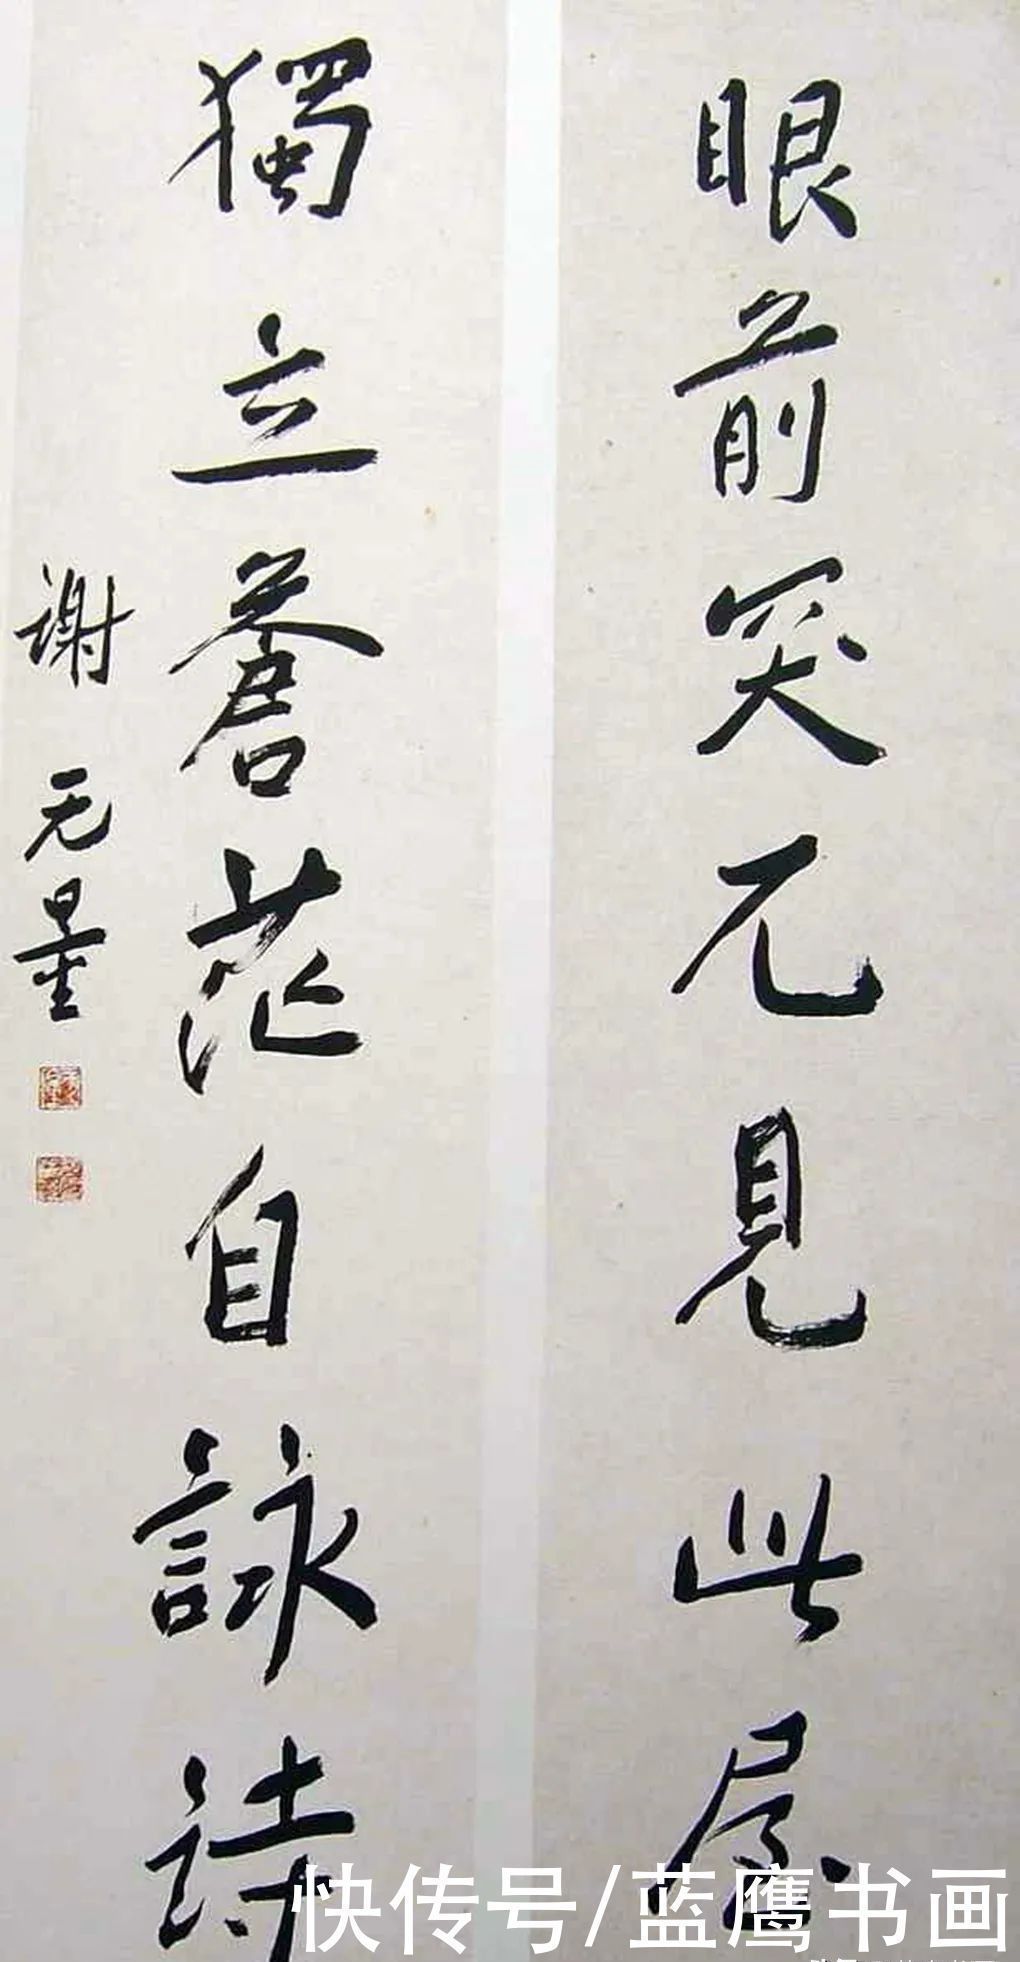 眼前突兀見此屋
獨立蒼茫自詠詩
謝无量
快传号/蓝鹰书画